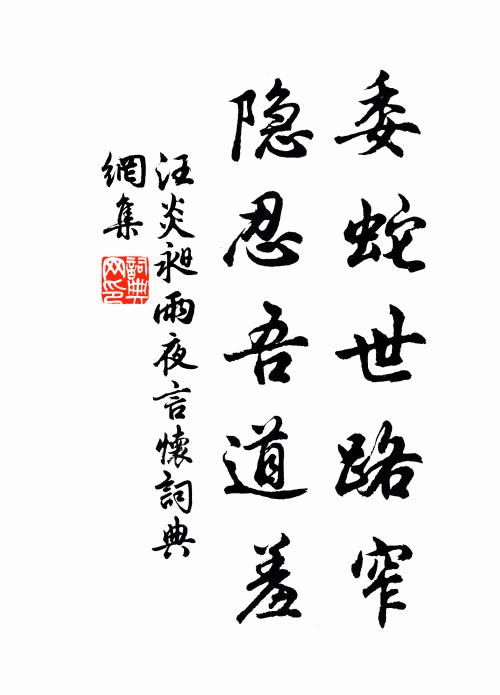 委蛇世路窄
隐忍吾道羞
汪炎昶雨夜言懷詞典
網集
詞典網印